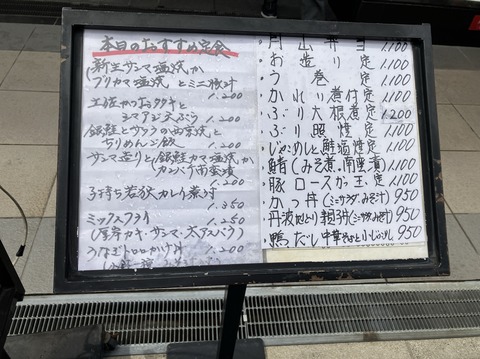 本日のおすすめ定食
新生サンマ塩焼か
ブリカマ塩焼 とミニ豚汁
1.200
土佐かつおタタキと
シマアジ天ぷら 1.200
銀鮭とサワラの西京焼と
ちりめんご飯 1.200
サンマ造りと銀鮭カマ塩焼か
カンパチ南蛮漬
1.200
子持ち若狭カレイ煮付
1.350
ミックスフライ 1.250
(厚岸カキ・サンマ・太アスパラ)
うなぎトロロかけ丼
1.200
・円山弁当 1,100
・お造り定 1,100
・う巻定 1,100
・かれい煮付定 1,100
・ぶり大根煮定 1,200
・ぶり照焼定 1,100
・じゃこめしと鮭塩焼定 1,100
・鯖(みそ煮・南蛮漬) 1,100
・豚ロースカツ玉定 1,100
・かつ丼(ミニサラダ・みそ汁) 950
・丹波地どり親子丼(ミニサラダ・みそ汁) 950
・鴨だし中華そばと小じゃこめし 950